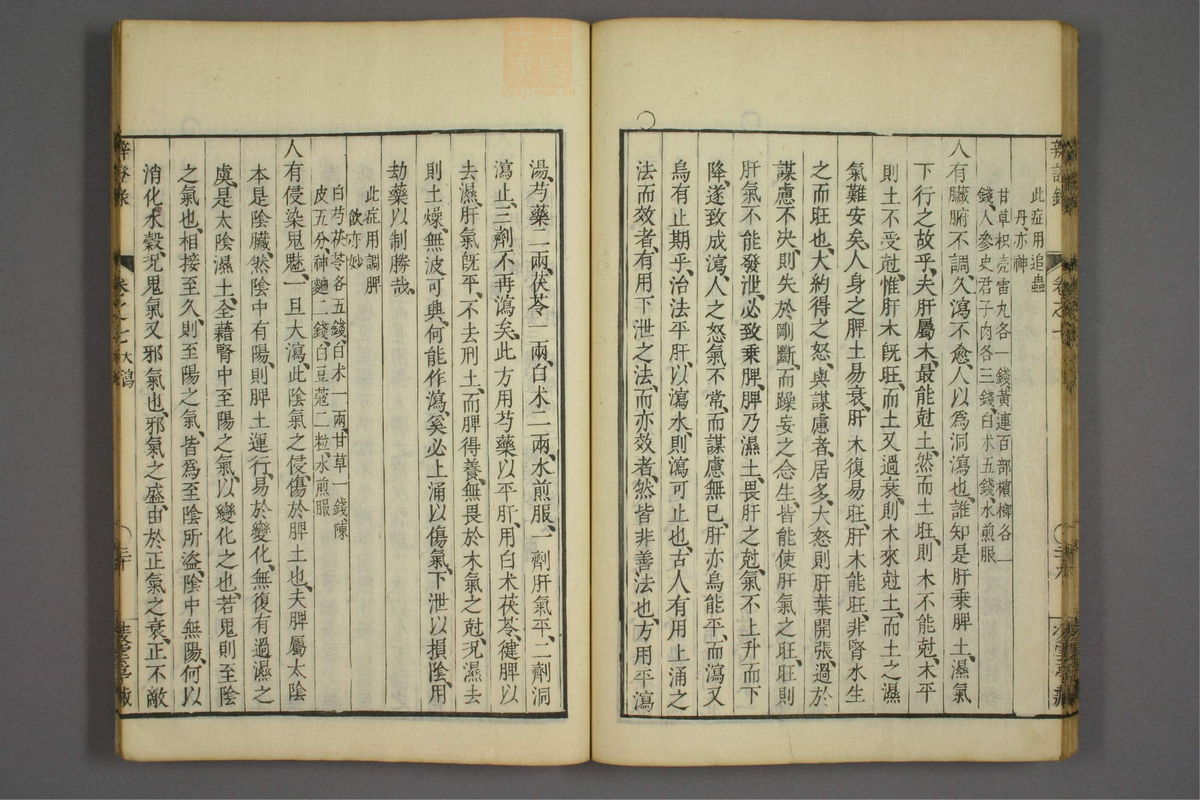 辨證錄
卷之七
此症用追蟲
丹亦神
甘草枳壳雷丸各一錢黃連百部檳榔各二
錢人參史君子肉各三錢白术五錢水煎服
人有臟腑不調久瀉不愈人以爲洞瀉也誰知是肝乘脾土濕氣
下行之故乎夫肝屬木最能尅土然而土旺則木不能尅木平
則土不受尅惟肝木旣旺而土又過衰則木來尅土而土之濕
氣難安矣人身之脾土易衰肝木復易旺肝木能旺非腎水生
之而旺也大約得之怒與謀慮者居多大怒則肝葉開張過於
謀慮不决則失於剛斷而躁妄之念生皆能使肝氣之旺旺則
肝氣不能發泄必致乘脾脾乃濕土畏肝之尅氣不上升而下
降遂致成瀉人之怒氣不常而謀慮無已肝亦烏能平而瀉又
烏有止期乎治法平肝以瀉水則瀉可止也古人有用上涌之
法而效者有用下泄之法而亦效者然皆非善法也方用平瀉
湯芍藥二兩茯苓一兩白术二兩水煎服一劑肝氣平二劑洞
瀉止三劑不再瀉矣此方用芍藥以平肝用白术茯苓健脾以
去濕肝氣旣平不去刑土而脾得養無畏於木氣之尅况濕去
則土燥無波可興何能作瀉奚必上涌以傷氣下泄以損陰用
刼藥以制勝哉
此症用調脾
飲亦妙
白芍茯苓各五錢白术一兩甘草一錢陳
皮五分神麯二錢白豆蔻二粒水煎服
人有侵染鬼魅一旦大瀉此陰氣之侵傷於脾土也夫脾屬太陰
本是陰臟然陰中有陽則脾土運行易於變化無復有過濕之
虞是太陰濕土全藉腎中至陽之氣以變化之也若鬼則至陰
之氣也相接至久則至陽之氣皆爲至陰所盗陰中無陽何以
消化水穀况鬼氣又邪氣也邪氣之盛由於正氣之衰正不敵
卷之七大瀉
三十